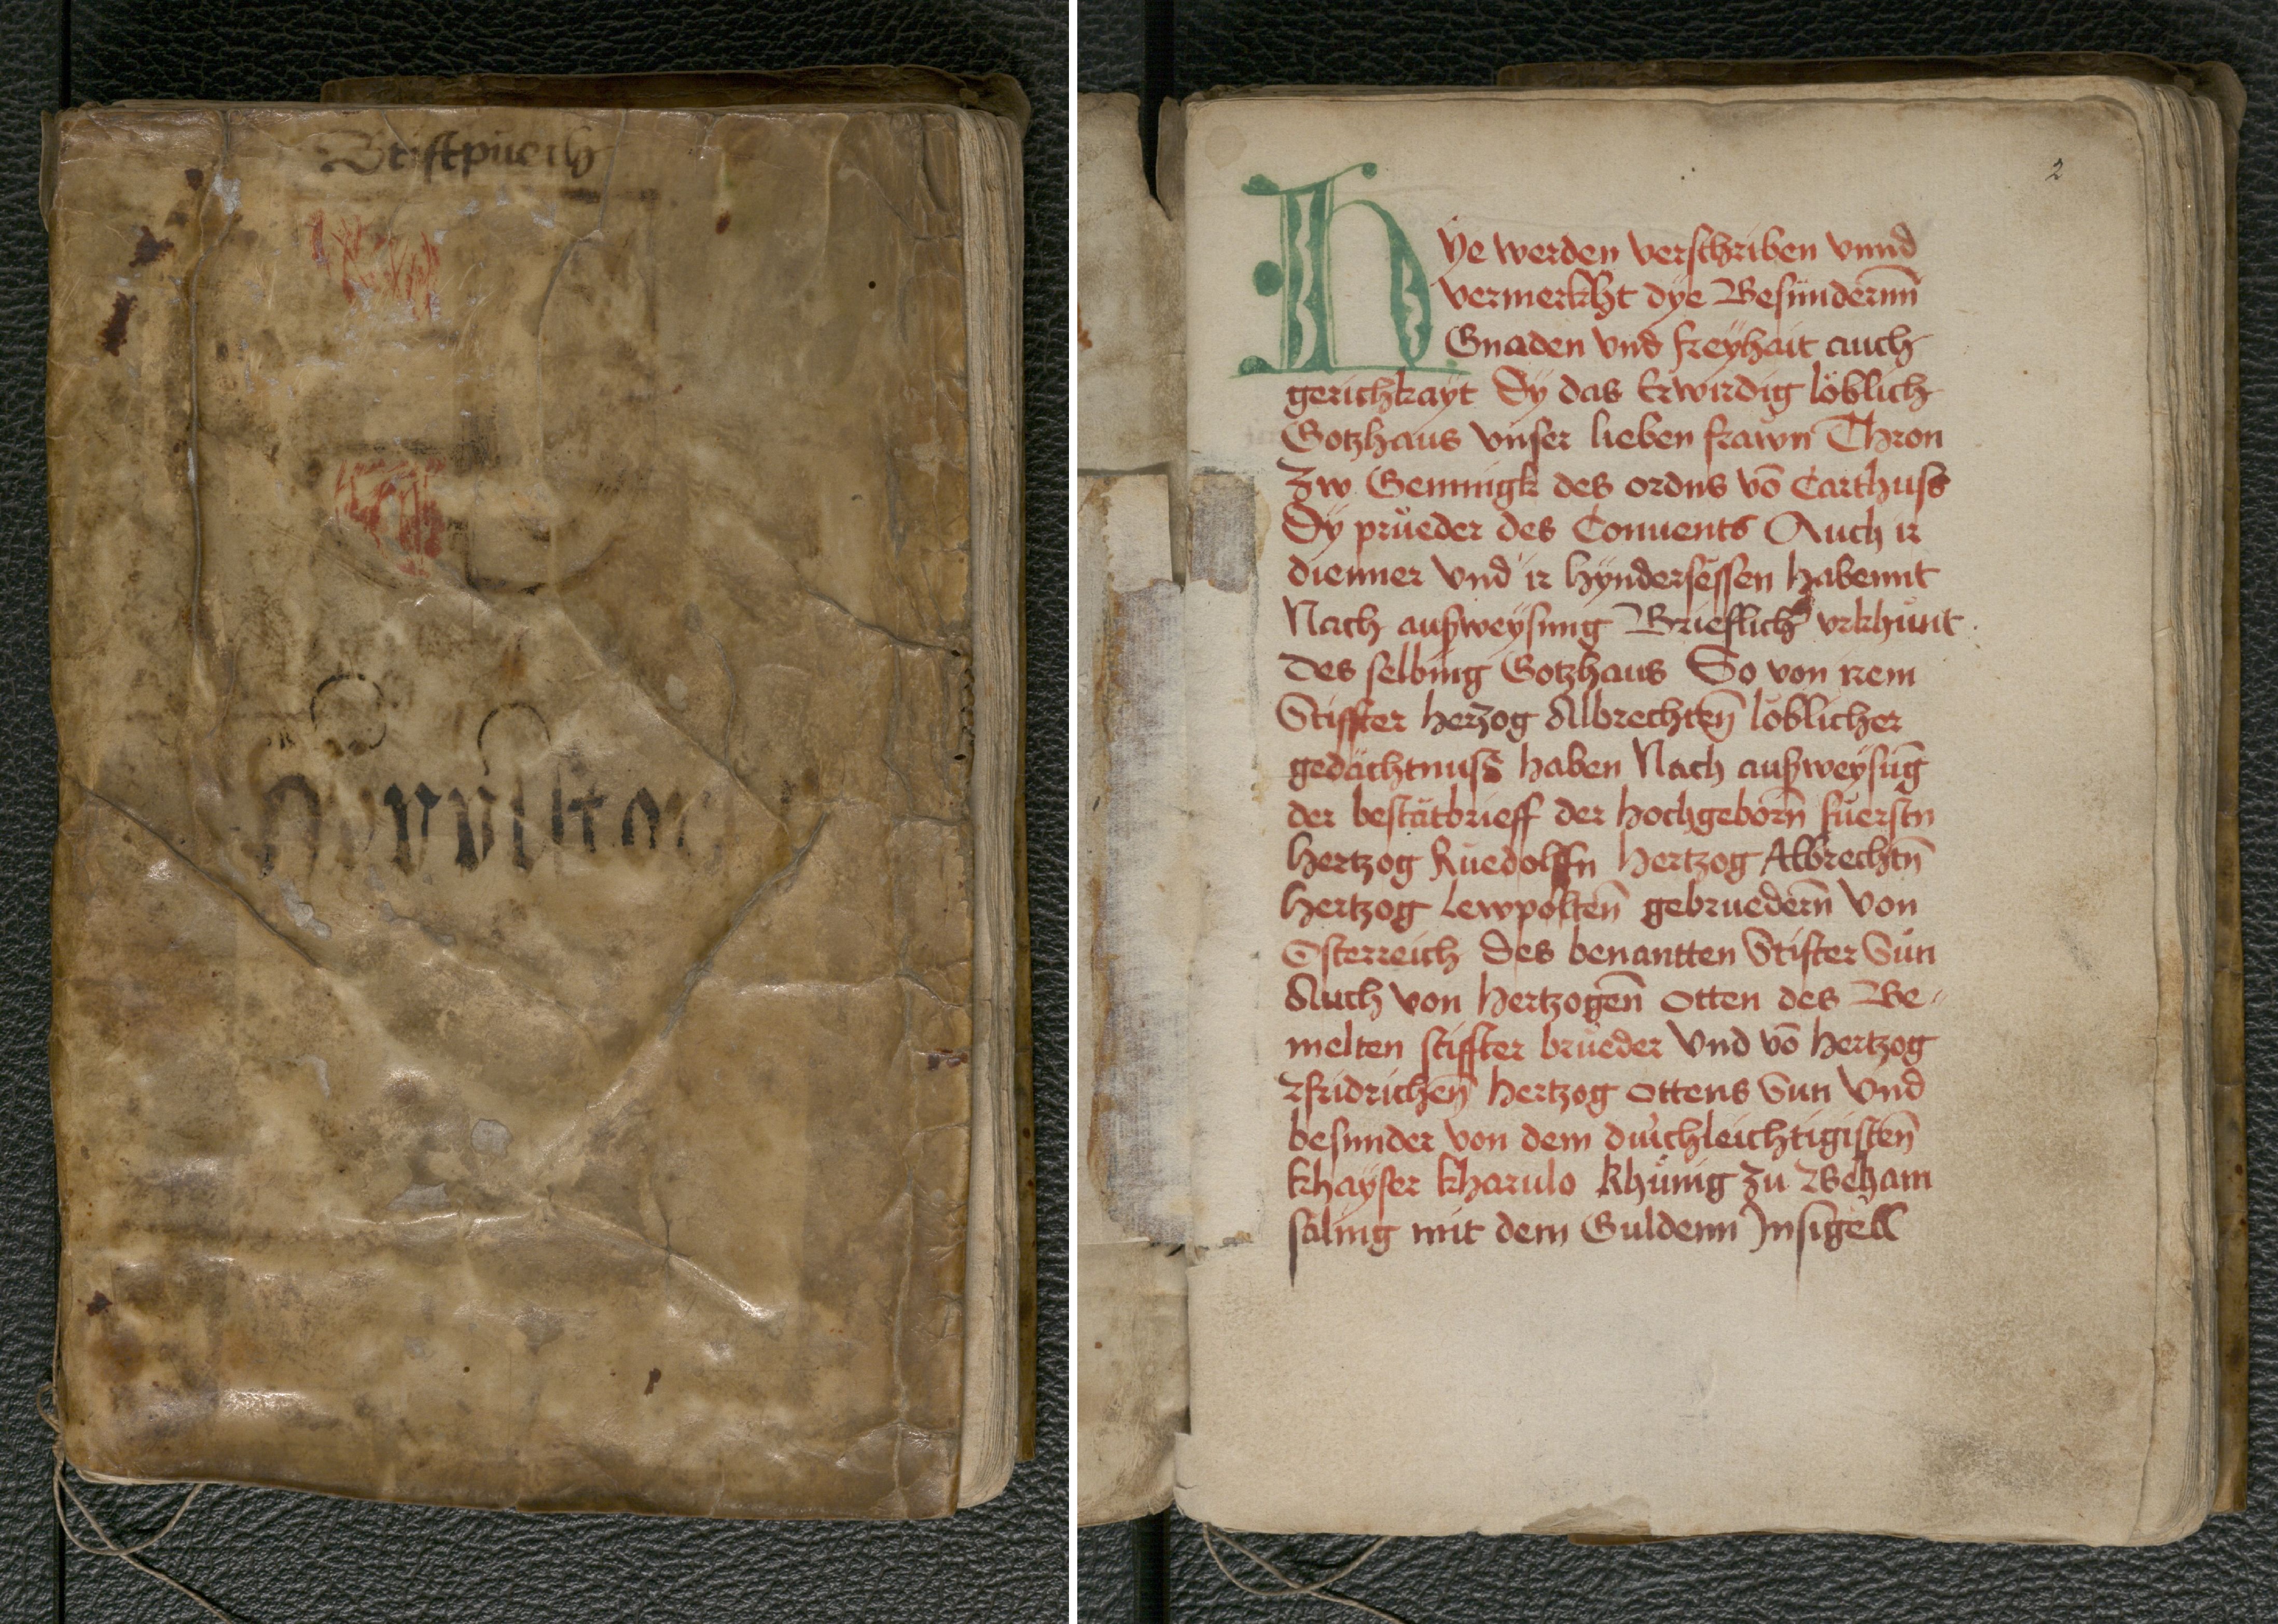 Stiftpuech
2
Hÿe werden verschriben vnnd
vermerkht dÿe Besündernn̄
Gnaden vnd freÿhait auch
gerichkaÿt Dÿ das Erwirdig löblich
Gotzhaus vnser lieben frawn Thron
Zw Gemnigk des ordns vō Carthuss
Dÿ prüeder des Conuents Auch ir
dienner vnd ir hÿndersëssen habennt
Nach außweÿsung Brieflich vrkhunt
des selbing Gotzhaus So von irem
Stiffter herzog Albrechten̄ löblicher
gedächtnuss haben Nach außweÿsūg
der bestätbrieff der hochgeborn̄ fuerstn
hertzog Ruedolffn hertzog Albrechtn̄
hertzog Lewpolten̄ gebruedern̄ von
Osterreich des benantten Stifter Sün
Auch von hertzogen̄ otten des Be-
melten stiffter brueder vnd vō hertzog
fridrichen̄ hertzog ottens Sun vnd
besunder von dem durchleichtigisten̄
khaÿser kharulo khünig zu Beham
säling mit dem Guldenn Jnsigell